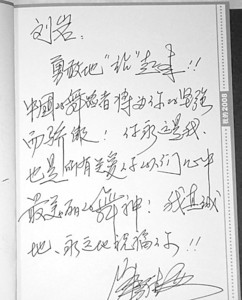 刘岩：
勇敢地“站”起来！！
中國的舞蹈者将为你的坚强
而骄傲！你永远是我、
也是所有关爱你的人们心中
最美丽的舞神！我真诚
地、永远地祝福你！！